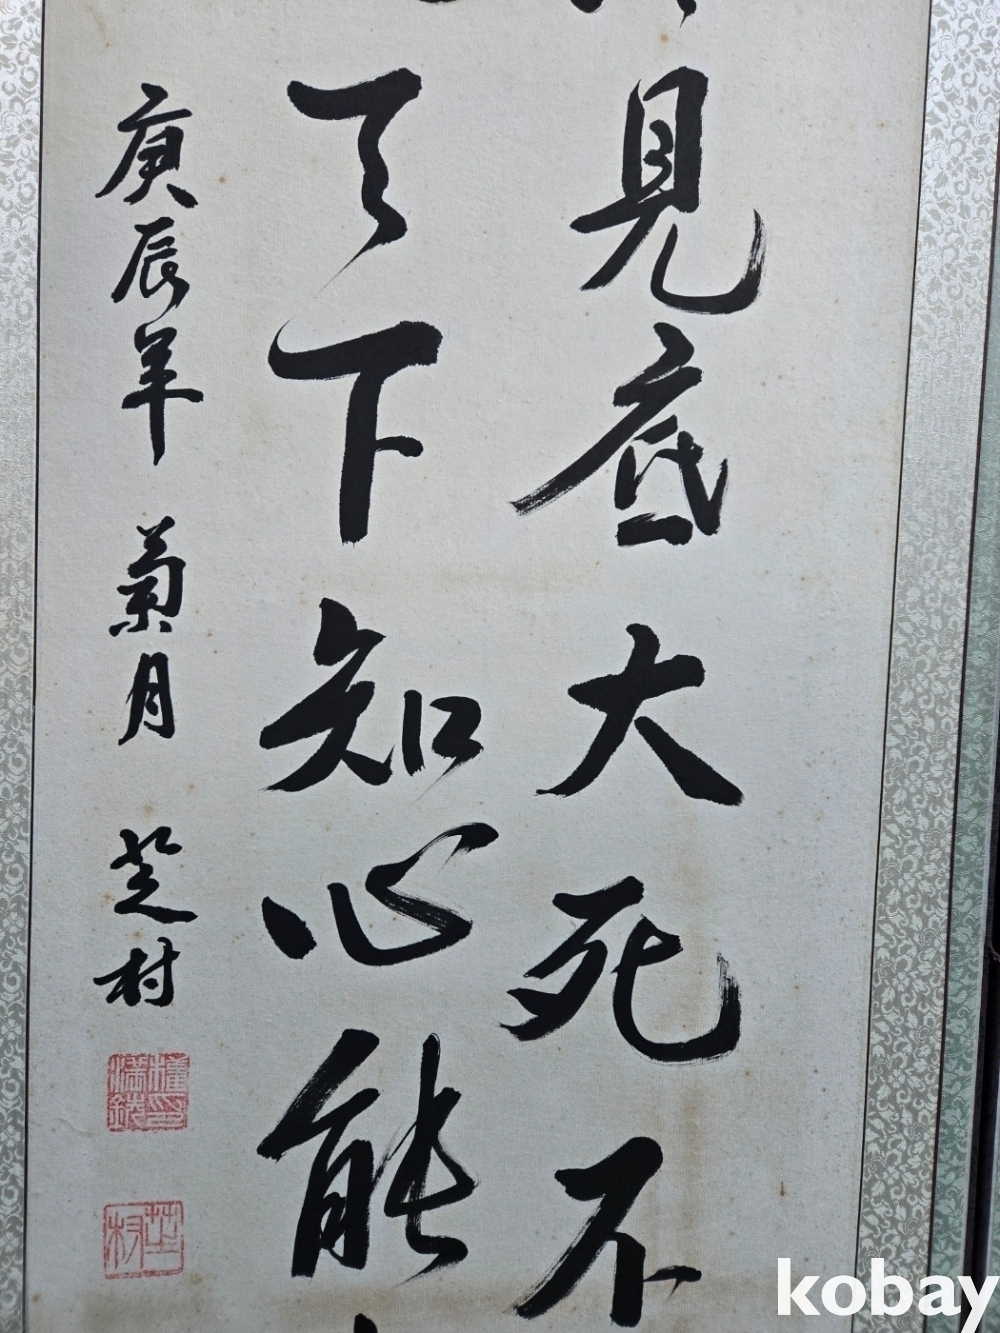 見底大死不
天下知心能
庚辰年 菊月 芝村
芝村
kobay